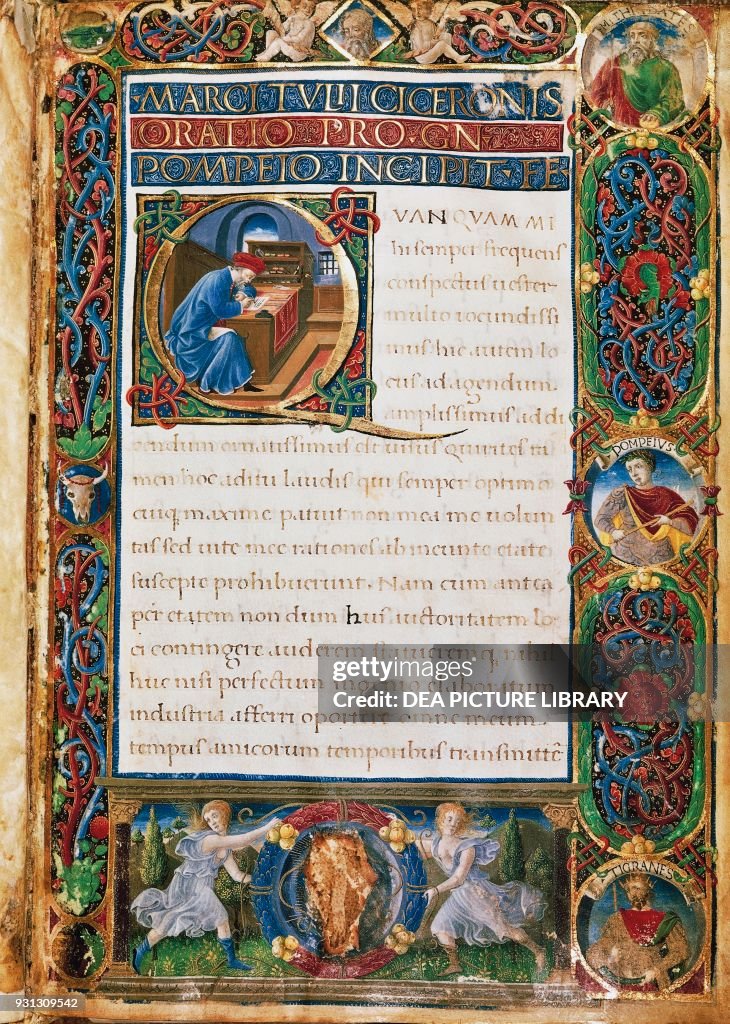 MARCI TVLI CICERONIS
ORATIO PRO GN
POMPEIO INCIPIT FE
VANQVAM MI
hi semper frequens
conspectus uester
multo iocundissi
mus hic autem lo
cus ad agendum
amplissimus ad di
cendum ornatissimus est uisus quirites ta
men hoc aditu laudis qui semper optimo
cuiq; maxime patuit non mea me uolun
tas sed uite mee rationes ab ineunte etate
suscepte prohibuerunt. Nam cum antea
per etatem non dum hus auctoritatem lo
ci contingere auderem statueremq; nihil
huc nisi perfectum elaboratum
industria afferri oportere omne meum
tempus amicorum temporibus transmittē
POMPEIVS
TIGRANES
gettyimages
Credit: DEA PICTURE LIBRARY
931309542